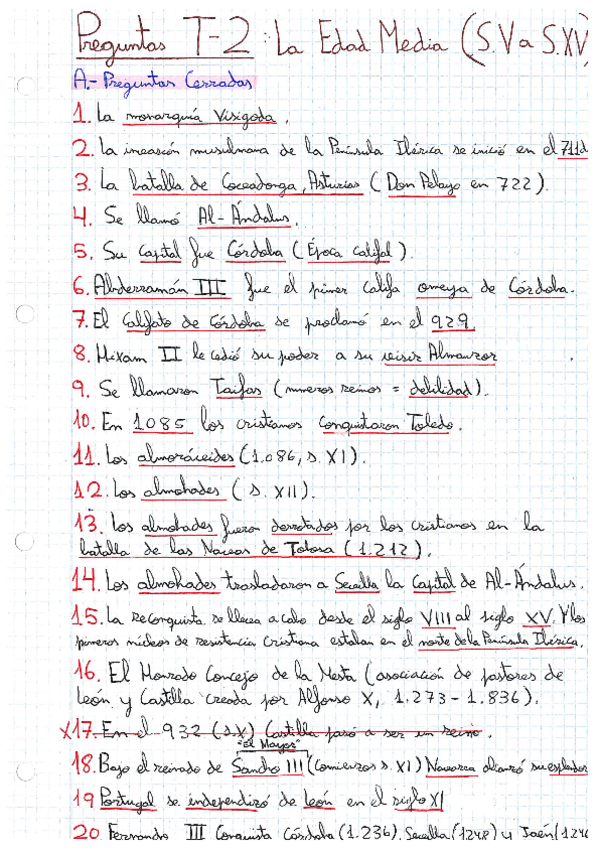 Preguntas T-2: La Edad Media (S.V a S.XV)
A.- Preguntas Cerradas
1. La monarquía Visigoda.
2. La invasión musulmana de la Península Ibérica se inició en el 711d
3. La batalla de Covadonga, Asturias (Don Pelayo en 722).
4. Se llamó Al-Ándalus.
5. Su capital fue Córdoba (Época califal).
6. Abderramán III fue el primer califa omeya de Córdoba.
7. El Califato de Córdoba se proclamó en el 929
8. Hixam II le cedió su poder a su visir Almanzor.
9. Se llamaron Taifas (nuevos reinos = debilidad).
10. En 1085 los cristianos conquistaron Toledo.
11. Los almorávides (1.086, s. XI).
12. Los almohades (s. XII).
13. Los almohades fueron derrotados por los cristianos en la
batalla de las Navas de Tolosa (1.212).
14. Los almohades trasladaron a Sevilla la Capital de Al-Ándalus.
15. La reconquista se lleva a cabo desde el siglo VIII al siglo XV. Y los
primeros núcleos de resistencia cristiana estaban en el norte de la Península Ibérica.
16. El Honrado Concejo de la Mesta (asociación de pastores de
León y Castilla creada por Alfonso X, 1.273-1.836).
X17. En el 932 (s.X) Castilla pasó a ser un reino.
"El Mayor"
18. Bajo el reinado de Sancho III (comienzos s. XI) Navarra alcanzó su esplendor
19 Portugal se independizó de León en el siglo XI
20 Fernando III Conquista Córdoba (1.236), Sevilla (1248) y Jaén (124